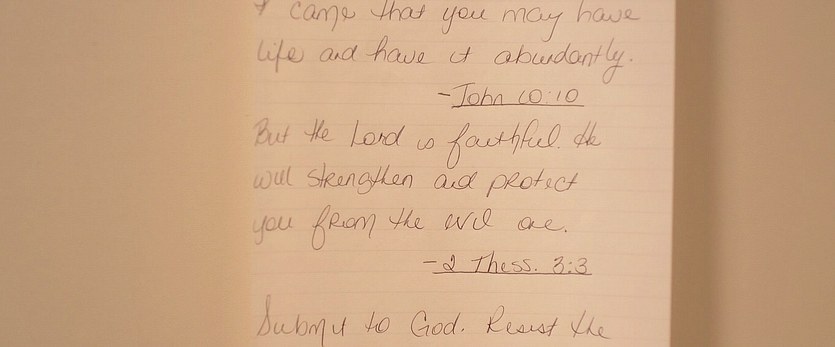 I came that you may have
life and have it abundantly.
-John 10:10
But the Lord is faithful. He
will strengthen and protect
you from the evil one.
-2 Thess. 3:3
Submit to God. Resist the